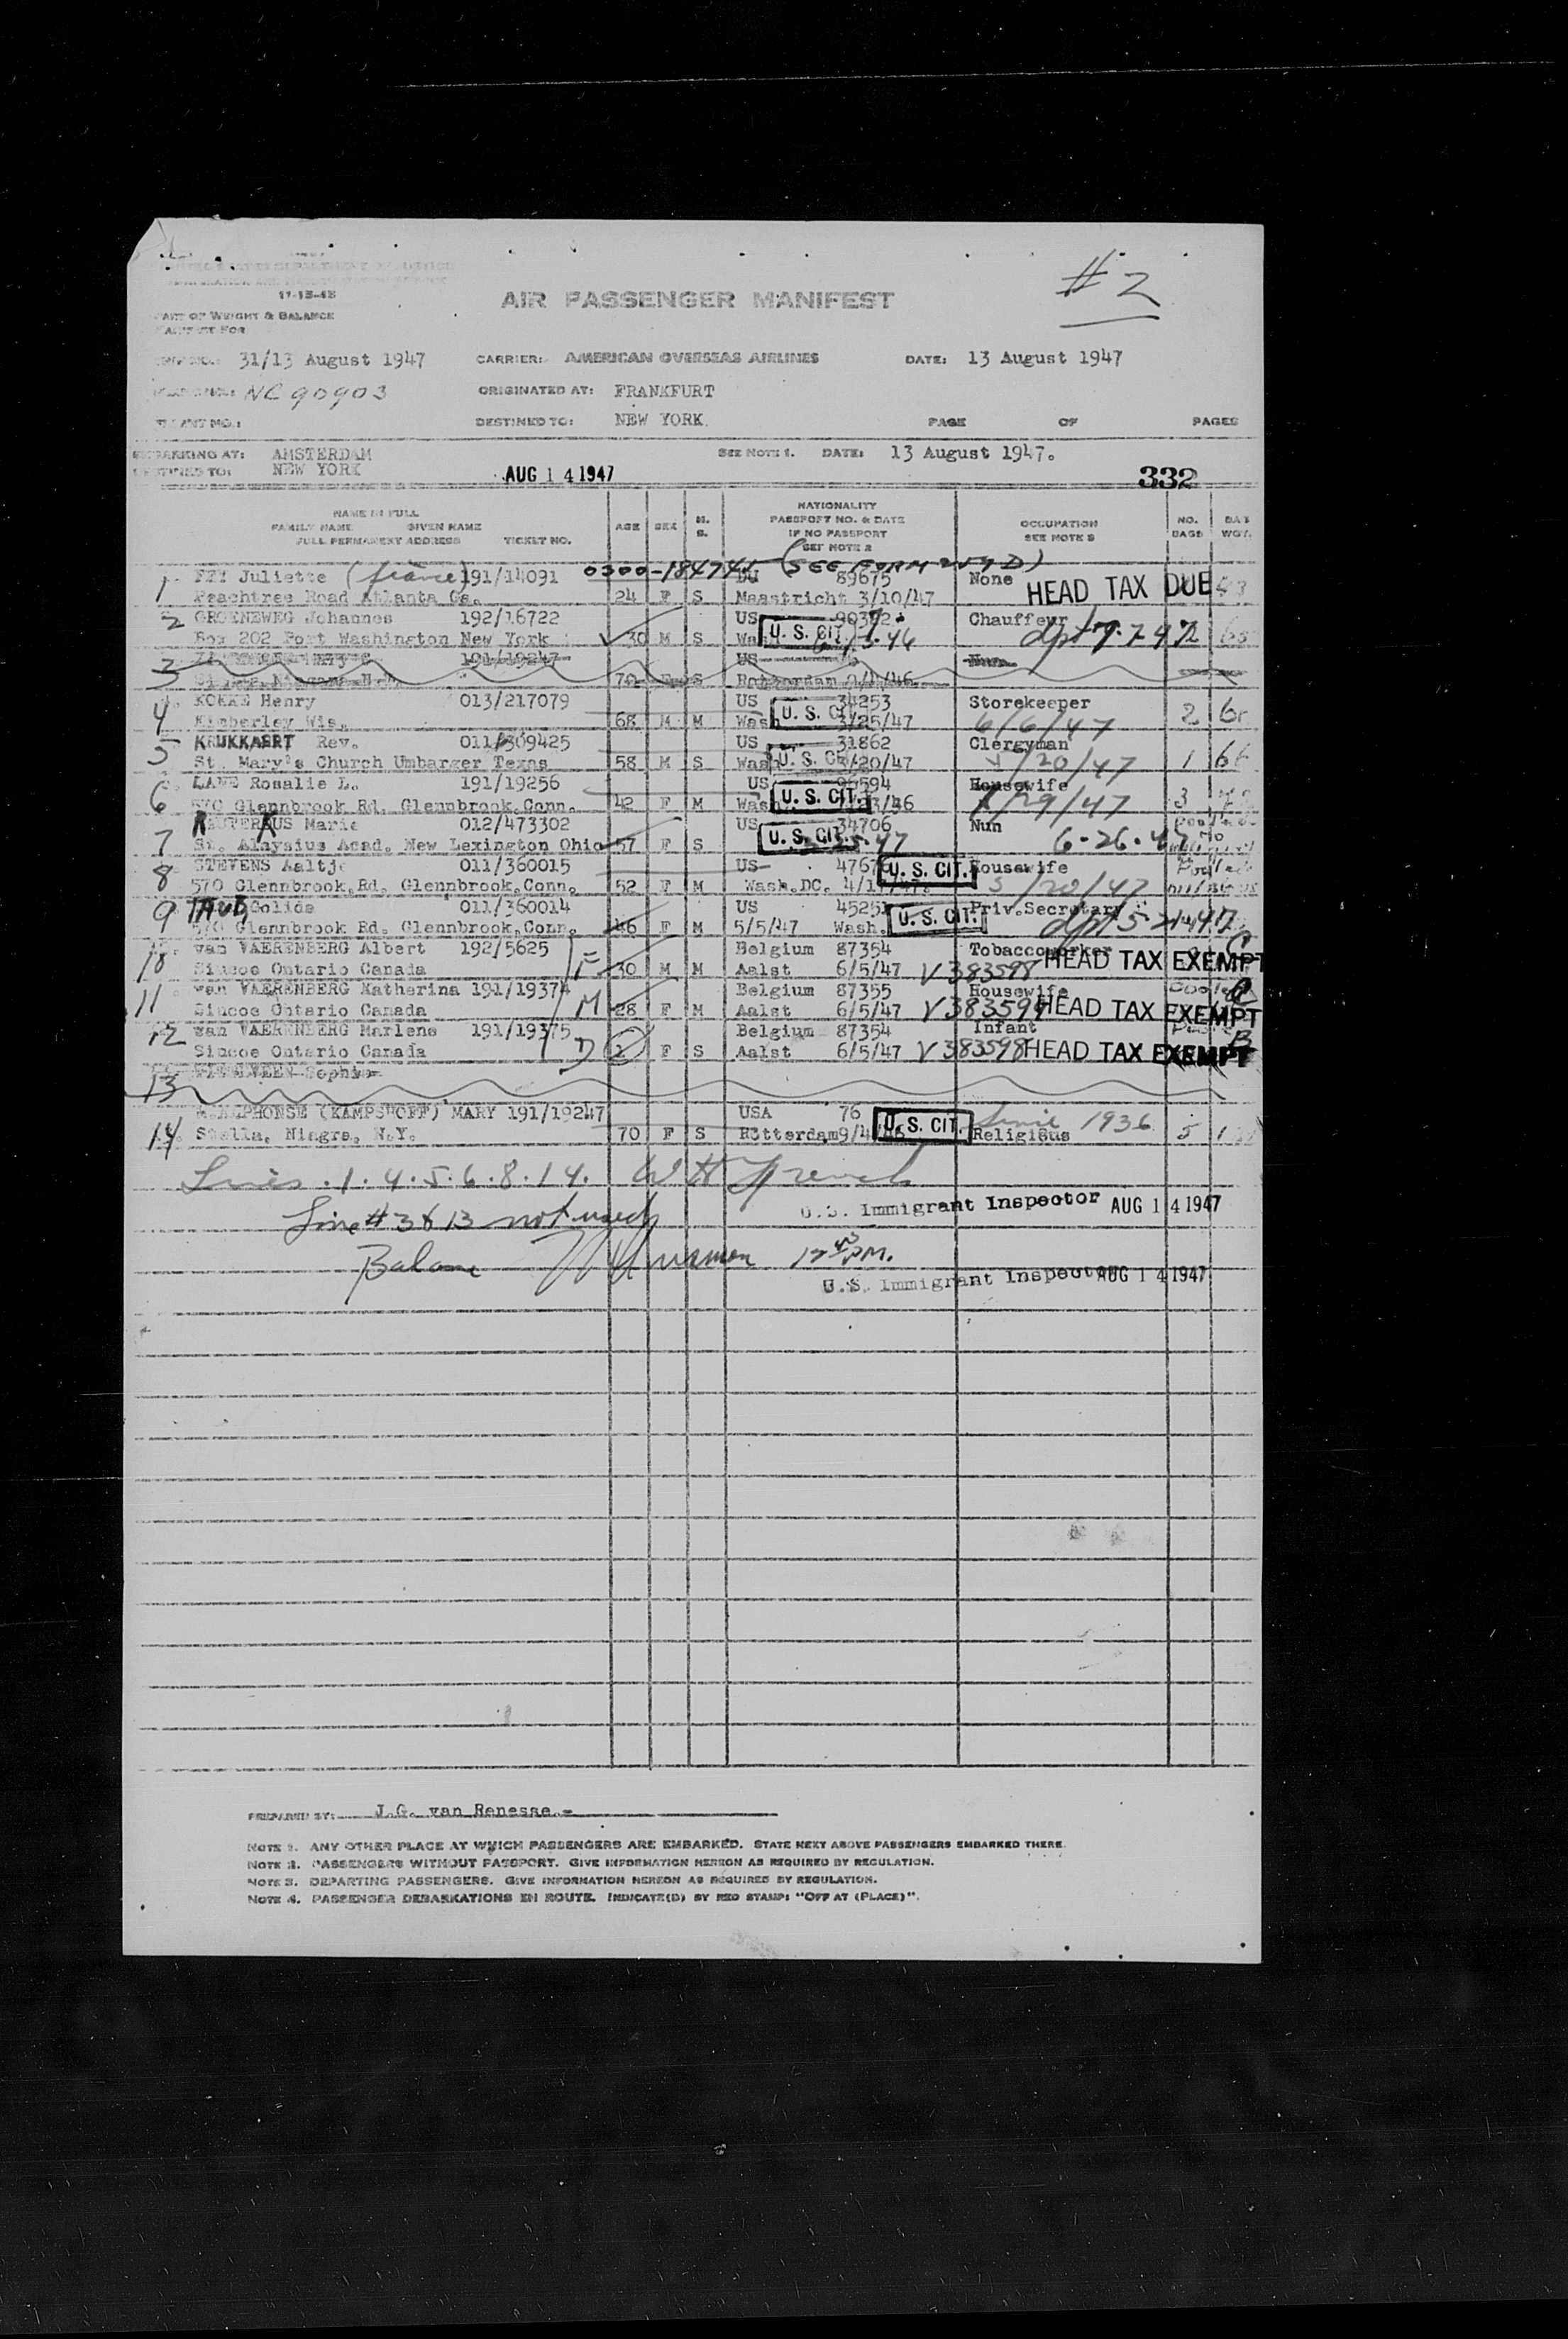 #2
11-15-45
AIR PASSENGER MANIFEST
PART OF WEIGHT & BALANCE
31/13 August 1947 CARRIER: AMERICAN OVERSEAS AIRLINES DATE: 13 August 1947
NC 90903 ORIGINATED AT: FRANKFURT
DESTINED TO: NEW YORK. PAGE OF PAGES
EMBARKING AT: AMSTERDAM SEE NOTE 1. DATE: 13 August 1947.
DESTINED TO: NEW YORK
AUG 14 1947 332
NAME IN FULL
FAMILY NAME GIVEN NAME
FULL PERMANENT ADDRESS TICKET NO.
AGE SEX M. S.
NATIONALITY
PASSPORT NO. & DATE
IF NO PASSPORT
SEE NOTE 2
OCCUPATION
SEE NOTE 3
NO. BAGS
BAG WGT.
0300-184741 (SEE FORM 259 D)
1 Juliette (fiancee) 191/14091 DU 89675 None HEAD TAX DUE
Peachtree Road Atlanta Ga. 24 F S Maastricht 3/10/47
2 GROENEWEG Johannes 192/16722 US Chauffeur
Box 202 Port Washington New York 30 M S U. S. CIT.
3 191/19247 US
70 F S Rotterdam 9/4/46
4 KOKKE Henry 013/217079 US 34253 Storekeeper
Kimberley Wis. 68 M M Wash U. S. CIT. 3/25/47 6/6/47 2
5 KRUKKAERT Rev. 011/309425 US 31862 Clergyman
St. Mary's Church Umbarger Texas 58 M S Wash U. S. CIT. /20/47 /20/47 1
6 LANE Rosalie L. 191/19256 US Housewife
570 Glennbrook Rd. Glennbrook.Conn. 42 F M Wash U. S. CIT. /46 /29/47 3
7 Marie 012/473302 US 34706 Nun
St. Aloysius Acad. New Lexington Ohio 57 F S U. S. CIT. 6-26-47
8 STEVENS Aaltje 011/360015 US 4767 U. S. CIT. Housewife
570 Glennbrook.Rd. Glennbrook.Conn. 52 F M Wash.DC. /20/47
9 011/360014 US 4525 Priv.Secretary
570 Glennbrook Rd. Glennbrook.Conn. 46 F M 5/5/47 Wash. U. S. CIT.
10 van VAERENBERG Albert 192/5625 Belgium 87354 Tobaccoworker
Simcoe Ontario Canada F 30 M M Aalst 6/5/47 V 383598 HEAD TAX EXEMPT
11 van VAERENBERG Katherina 191/19374 Belgium 87355 Housewife
Simcoe Ontario Canada M 28 F M Aalst 6/5/47 V 383599 HEAD TAX EXEMPT
12 van VAERENBERG Marlene 191/19375 Belgium 87354 Infant
Simcoe Ontario Canada D 1 F S Aalst 6/5/47 V 383598 HEAD TAX EXEMPT
13 Sophie
14 (KAMPSHOFF) MARY 191/19247 USA 76 U. S. CIT. Since 1936
Stella, Niagra, N.Y. 70 F S Rotterdam 9/4/46 Religious 5
Lines . 1 . 4 . 5 . 6 . 8 . 14. W H French
U.S. Immigrant Inspector AUG 14 1947
Line # 3 & 13 not used
Balance 12 45 PM.
U.S. Immigrant Inspector AUG 14 1947
PREPARED BY: J.G. van Renesse.-
NOTE 1. ANY OTHER PLACE AT WHICH PASSENGERS ARE EMBARKED. STATE NEXT ABOVE PASSENGERS EMBARKED THERE.
NOTE 2. PASSENGERS WITHOUT PASSPORT. GIVE INFORMATION HEREON AS REQUIRED BY REGULATION.
NOTE 3. DEPARTING PASSENGERS. GIVE INFORMATION HEREON AS REQUIRED BY REGULATION.
NOTE 4. PASSENGER DEBARKATIONS EN ROUTE. INDICATE(D) BY RED STAMP: "OFF AT (PLACE)".